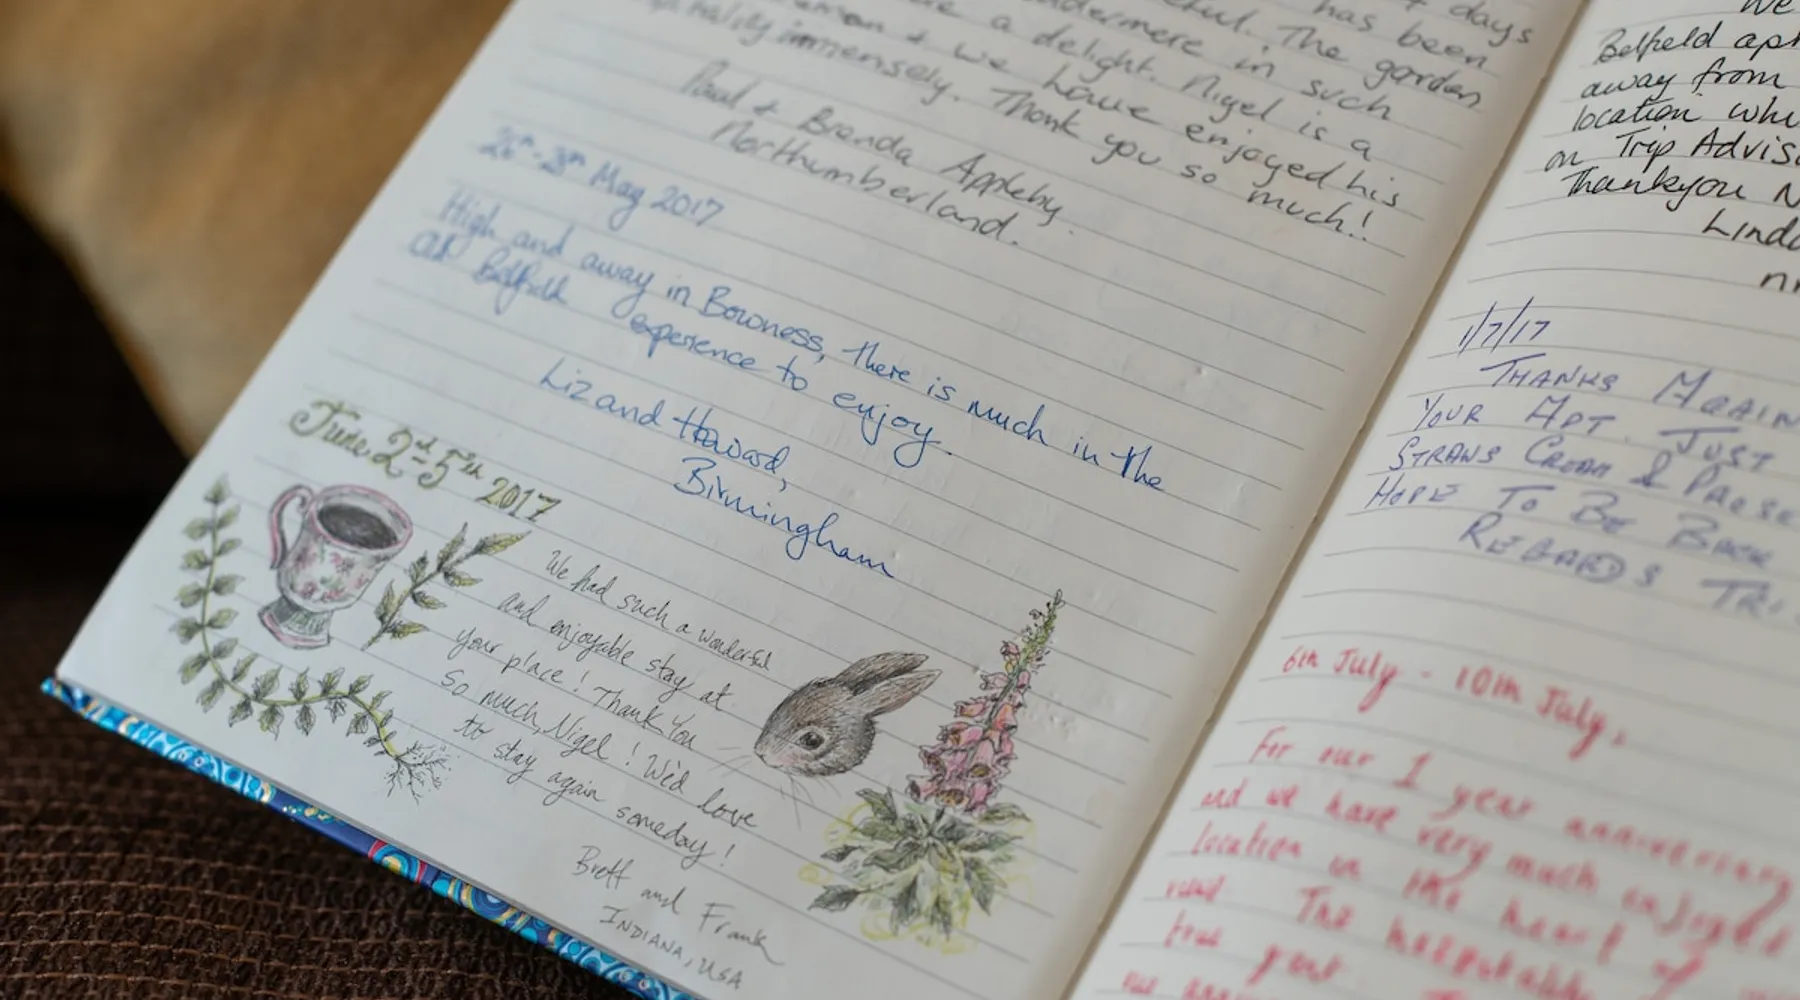 days
has been
The garden
ndermere in such
a delight. Nigel is a
+ we have enjoyed his
immensely. Thank you so much!
Paul + Brenda Appleby.
Northumberland.
May 2017
High and away in Bowness, there is much in the
at Belfield experience to enjoy.
Liz and Howard,
Birmingham
June 2nd-5th 2017
We had such a wonderful
and enjoyable stay at
your place! Thank You
so much, Nigel! We'd love
to stay again someday!
Brett and Frank
INDIANA, USA
We
Belfield apt
away from
location
on Trip Adviso
Thankyou N
Linda
1/7/17
THANKS AGAIN
YOUR APT. JUST
STRAWS CREAM &
HOPE TO BE BACK
REGARDS
6th July - 10th July,
For our 1 year anniversary
and we have very much enjoyed
location in the heart of
The